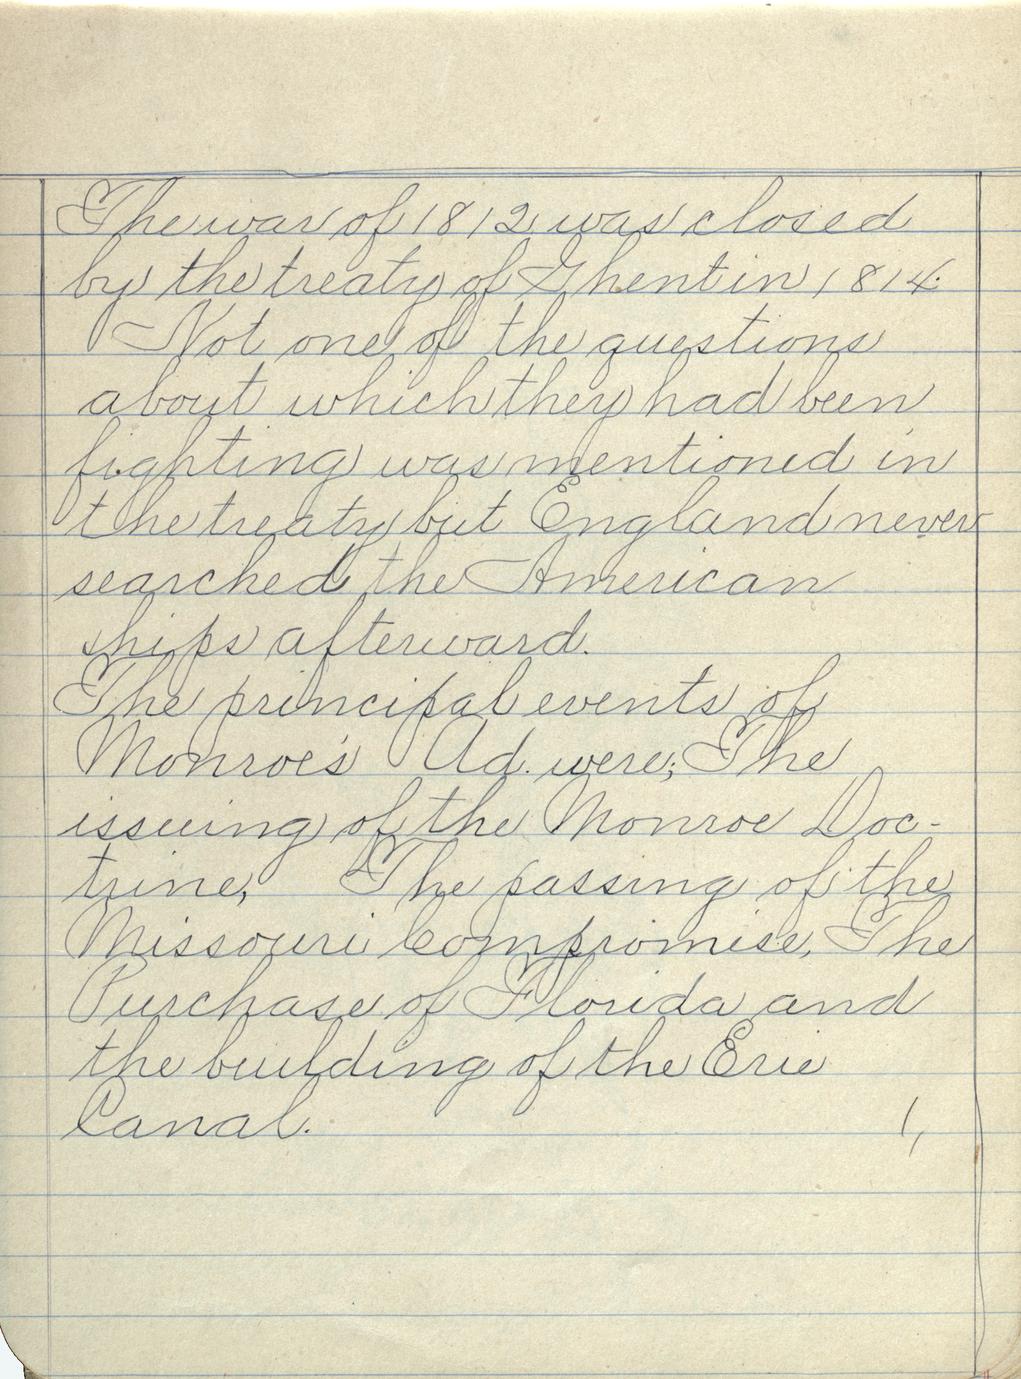 The war of 1812 was closed
by the treaty of Ghent in 1814.
Not one of the questions
about which they had been
fighting was mentioned in
the treaty but England never
searched the American
ships afterward.
The principal events of
Monroe's Ad. were; The
issuing of the Monroe Doc-
trine, The passing of the
Missouri Compromise, The
Purchase of Florida and
the building of the Erie
Canal.